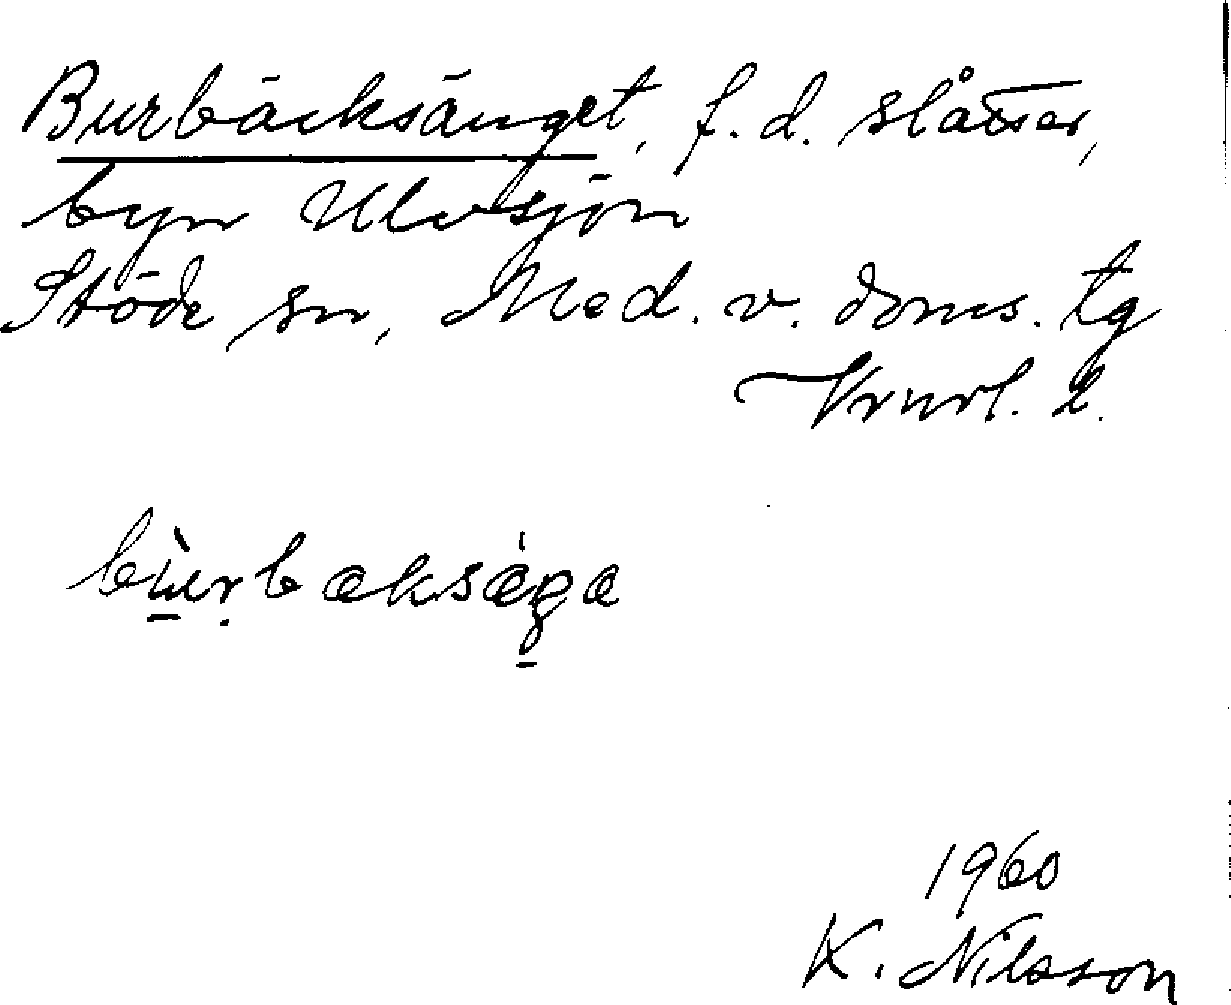 Burbäcksänget, f.d. slåtter,
byn Ulvsjön
Stöde sn, Med. v. doms. tg
Vrnrl. 2.
bùrbaksága
1960
K. Nilsson